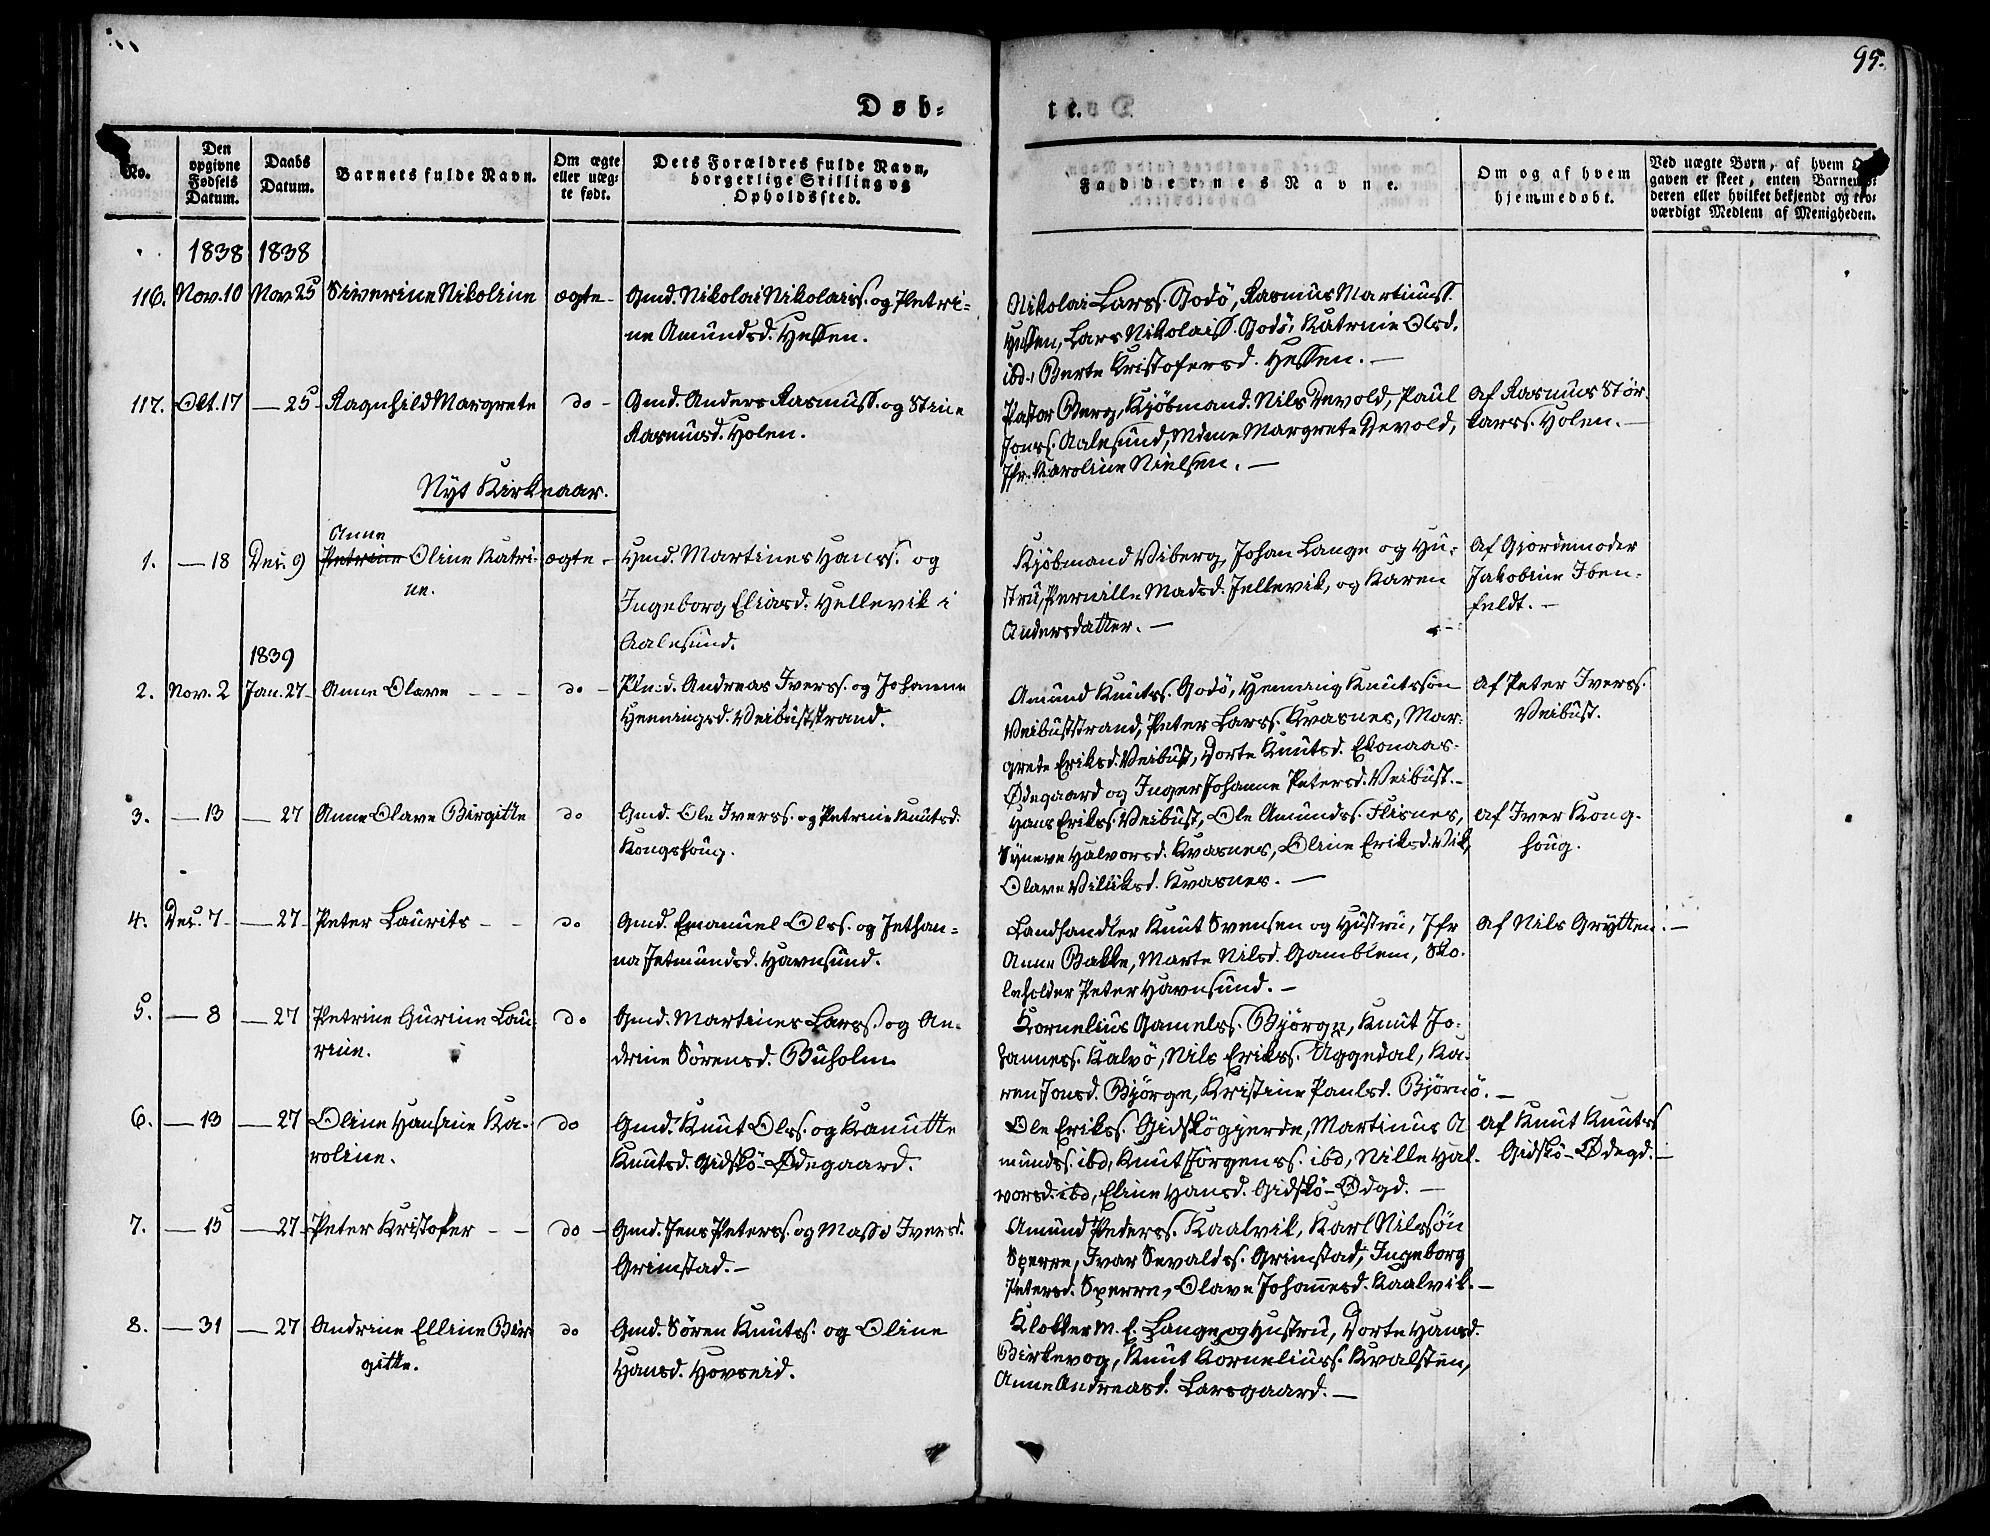 95.
Døb-
te.
No.
Den
opgivne
Fødsels
Datum.
Daabs
Datum.
Barnets fulde Navn.
Om ægte
eller uæg-
te født.
Dets Forældres fulde Navn,
borgerlige Stilling og
Opholdssted.
Faddernes Navne.
Om og af hvem
hjemmedøbt.
Ved uægte Børn, af hvem
gaven er skeet, enten Barnemo-
deren eller hvilket bekjendt og tro-
værdigt Medlem af Menigheden.
1838 1838
116. Nov. 10 Nov. 25 Siverine Nikoline ægte - Gmd. Nikolai Nikolaiss. og Petri-
ne Amundsd. Hessen.
Nikolai Larss. Godø, Rasmus Martinuss.
Hessen, Lars Nikolaiss. Godø, Katrine Olsd.
ibd., Berte Kristofersd. Hessen. —
117. Okt. 17 — 25 Ragnhild Margrete do - Gmd. Anders Rasmuss. og Stine
Rasmusd. Holen.
Pastor Berg, Kjøbmand. Nils Devold, Paul
Jonss. Aalesund, Mdme Margrete Devold,
Jfr. Karoline Nielsen. —
af Rasmus Stør
karss. Holen. —
Nyt Kirkeaar.
1. — 18 Dec. 9 Petrine Anne Oline Katri-
ne.
ægte - Hmd. Martines Hanss. og
Ingeborg Eliasd. Hellevik i
Aalesund.
Kjøbmand Viberg, Johan Lange og Hu-
stru, Pernille Madsd. Jellevik, og Karen
Andersdatter. —
Af Gjordemoder
Jakobine Iben-
feldt. —
1839
2. Nov. 2 Jan. 27 Anne Olave - - - do - Andreas Iverss. og Johanne
Henningsd. Veibuststrand.
Amund Knutss. Godø, Henning Knutssøn
Veibuststrand, Peter Larss. Kvasnes, Mar-
grete Eriksd. Veibust, Dorte Knutsd. Ekonaas-
Ødegaard og Inger Johanne Petersd. Veibust. -
af Peter Iverss.
Veibust.
3. — 13 — 27 Anne Olave Birgitte do Gmd. Ole Iverss. og Petrine Knutsd.
Kongshoug.
Hans Erikss. Veibust, Ole Amundss. Flisnes,
Synneve Halvorsd. Kvasnes, Oline Eriksd. Vik,
Olave Kvasnes. —
af Iver Kong-
houg.
4. Dec. 7 - — 27 Peter Laurits - - do Gmd. Emanuel Olss. og Jethan-
na Jetmundsd. Havnsund.
Landhandler Knut Svensen og Hustru, Jfr
Anne Bakke, Marte Nilsd. Gamblem, Sko-
leholder Peter Havnsund. —
af Nils Grytten. —
5. — 8 — 27 Petrine Gurine Lau-
rine.
do Gmd. Martines Larss. og An-
drine Sørensd. Buholm
Kornelius Gamelss. Bjørge, Knut Jo-
hanness. Kalvø, Nils Erikss. Uggedal, Ka-
ren Jonsd. Bjørge, Kristine Paulsd. Bjørnø. —
6. — 13 — 27 Oline Hansine Ka-
roline.
do Gmd. Knut Olss. og Kanutte
Knutsd. Gidskø-Ødegaard.
Ole Erikss. Gidskøgjerde, Martinus A
mundss. ibd, Knut Jørgenss. ibd, Nille Hal-
vorsd. ibd, Eline Hansd. Gidskø-Ødgd. —
af Knut Knutss
Gidskø-Ødegd. —
7. — 15 — 27 Peter Kristofer - - do - Gmd. Jens Peterss. og Masse Iversd.
Grimstad. —
Amund Pederss. Kaalvik, Karl Nilssøn
Sperre, Ivar Sevaldss. Grimstad, Ingeborg
Petersd. Sperre, Olave Johannesd. Kaalvik. —
8. — 31 — 27 Andrine Elline Bir-
gitte.
do Gmd. Søren Knutss. og Oline
Hansd. Hovseid.
Klokker M. E. Lange og Hustru, Dorte Hansd.
Birkevog, Knut Korneliuss. Kvalsten,
Anne Andreasd. Larsgaard. —